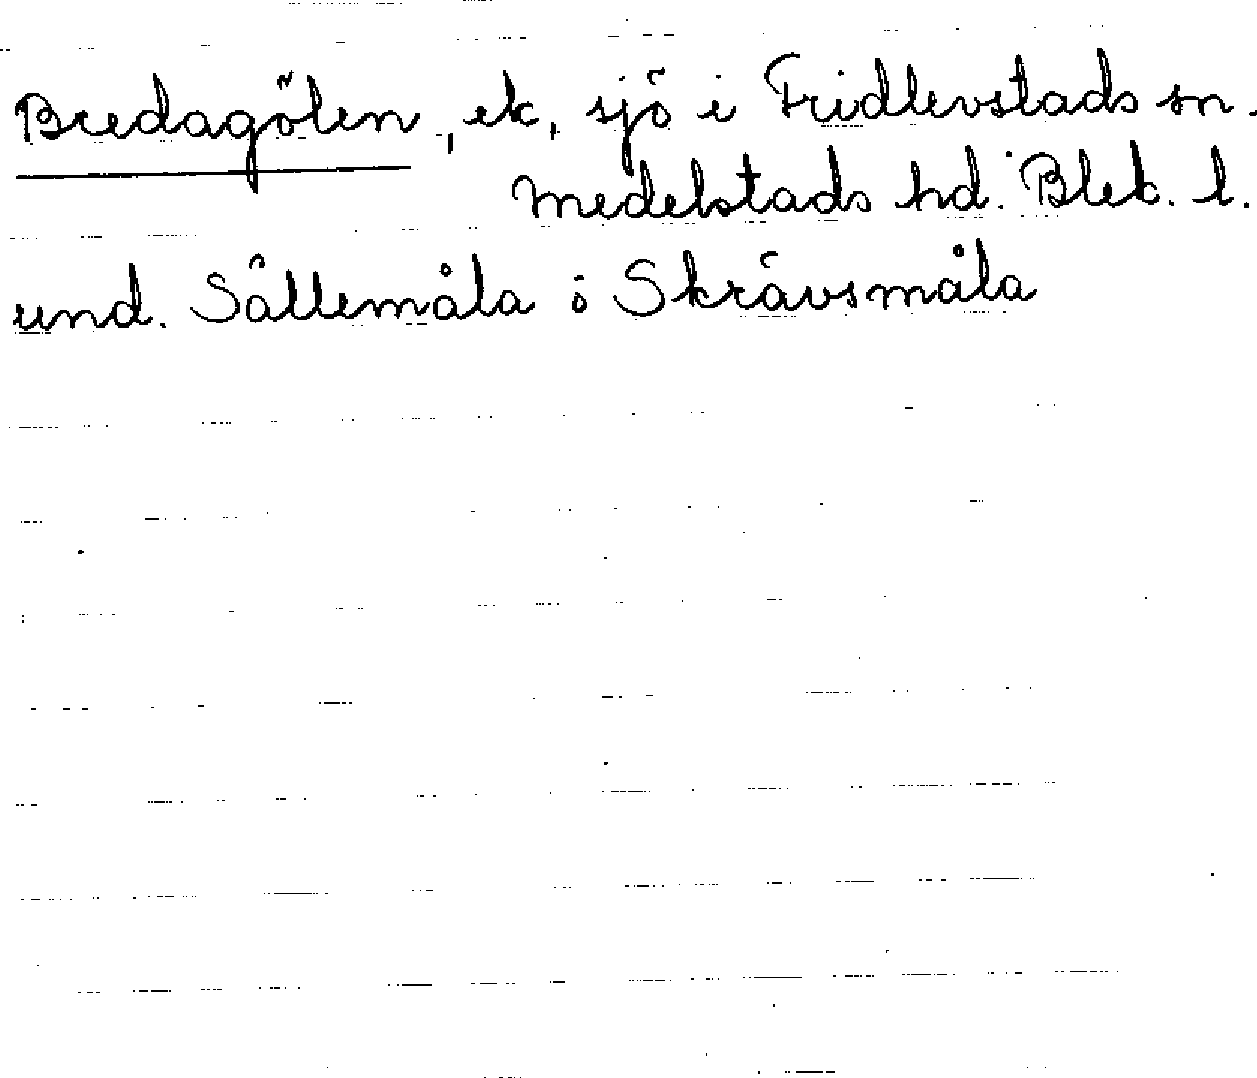 Bredagölen, ek, sjö i Fridlevstads sn.
Medelstads hd. Blek. l.
und. Sällemåla ö Skrävsmåla